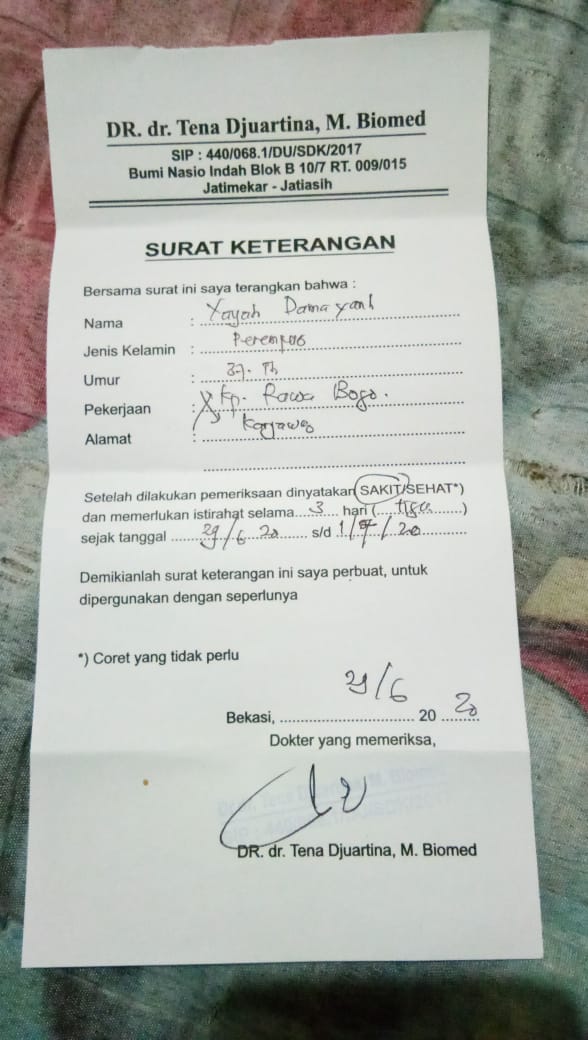 DR. dr. Tena Djuartina, M. Biomed
SIP : 440/068.1/DU/SDK/2017
Bumi Nasio Indah Blok B 10/7 RT. 009/015
Jatimekar - Jatiasih
SURAT KETERANGAN
Bersama surat ini saya terangkan bahwa :
Nama : Yayah Damayanti
Jenis Kelamin : Perempuan
Umur : 37. Th
Pekerjaan : Kp. Rawa Bogo.
Alamat :
Setelah dilakukan pemeriksaan dinyatakan SAKIT/SEHAT*)
dan memerlukan istirahat selama....3.... hari (....tiga........)
sejak tanggal .......29/6 20....... s/d .1/7/20............
Demikianlah surat keterangan ini saya perbuat, untuk
dipergunakan dengan seperlunya
*) Coret yang tidak perlu
29/6
Bekasi, .................................. 20 ..20....
Dokter yang memeriksa,
DR. dr. Tena Djuartina, M. Biomed